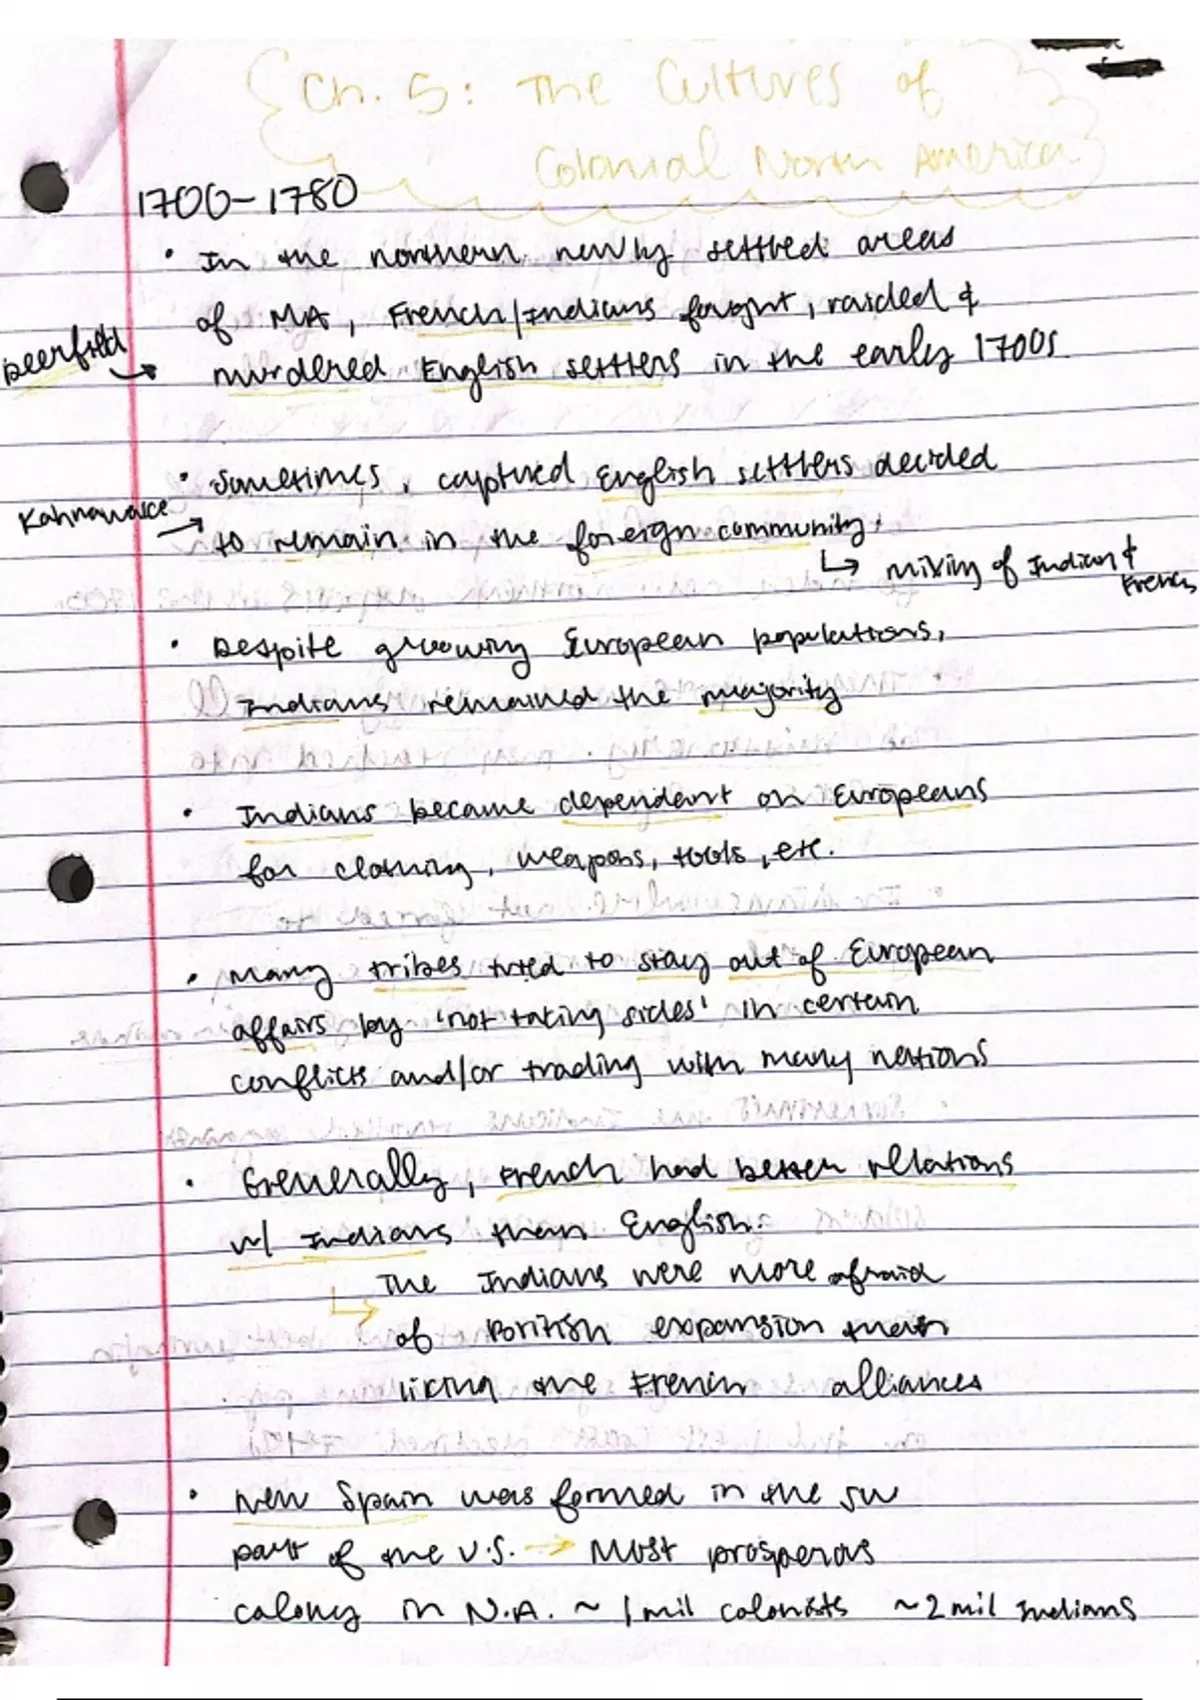 Ch. 5: The Cultures of
Colonial North America
1700-1780
• In the northern newly settled areas
of MA, French/Indians fought, raided &
Deerfield → murdered English settlers in the early 1700s
• Sometimes, captured English settlers decided
Kahnawake → to remain in the foreign community.
↳ mixing of Indian &
French
• Despite growing European populations,
Indians remained the majority
• Indians became dependant on Europeans
for clothing, weapons, tools, etc.
• Many tribes tried to stay out of European
affairs by 'not taking sides' in certain
conflicts and/or trading with many nations
• Generally, French had better relations
w/ Indians than English.
↳ The Indians were more afraid
of British expansion than
liking the French alliances
• New Spain was formed in the SW
part of the U.S. → Most prosperous
colony in N.A. ~ 1 mil colonists ~2 mil Indians